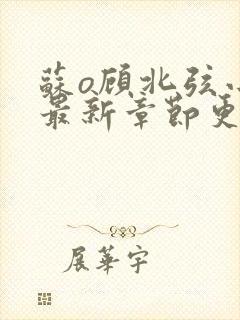 蘇o顾北弦
最新章節更
展華宇